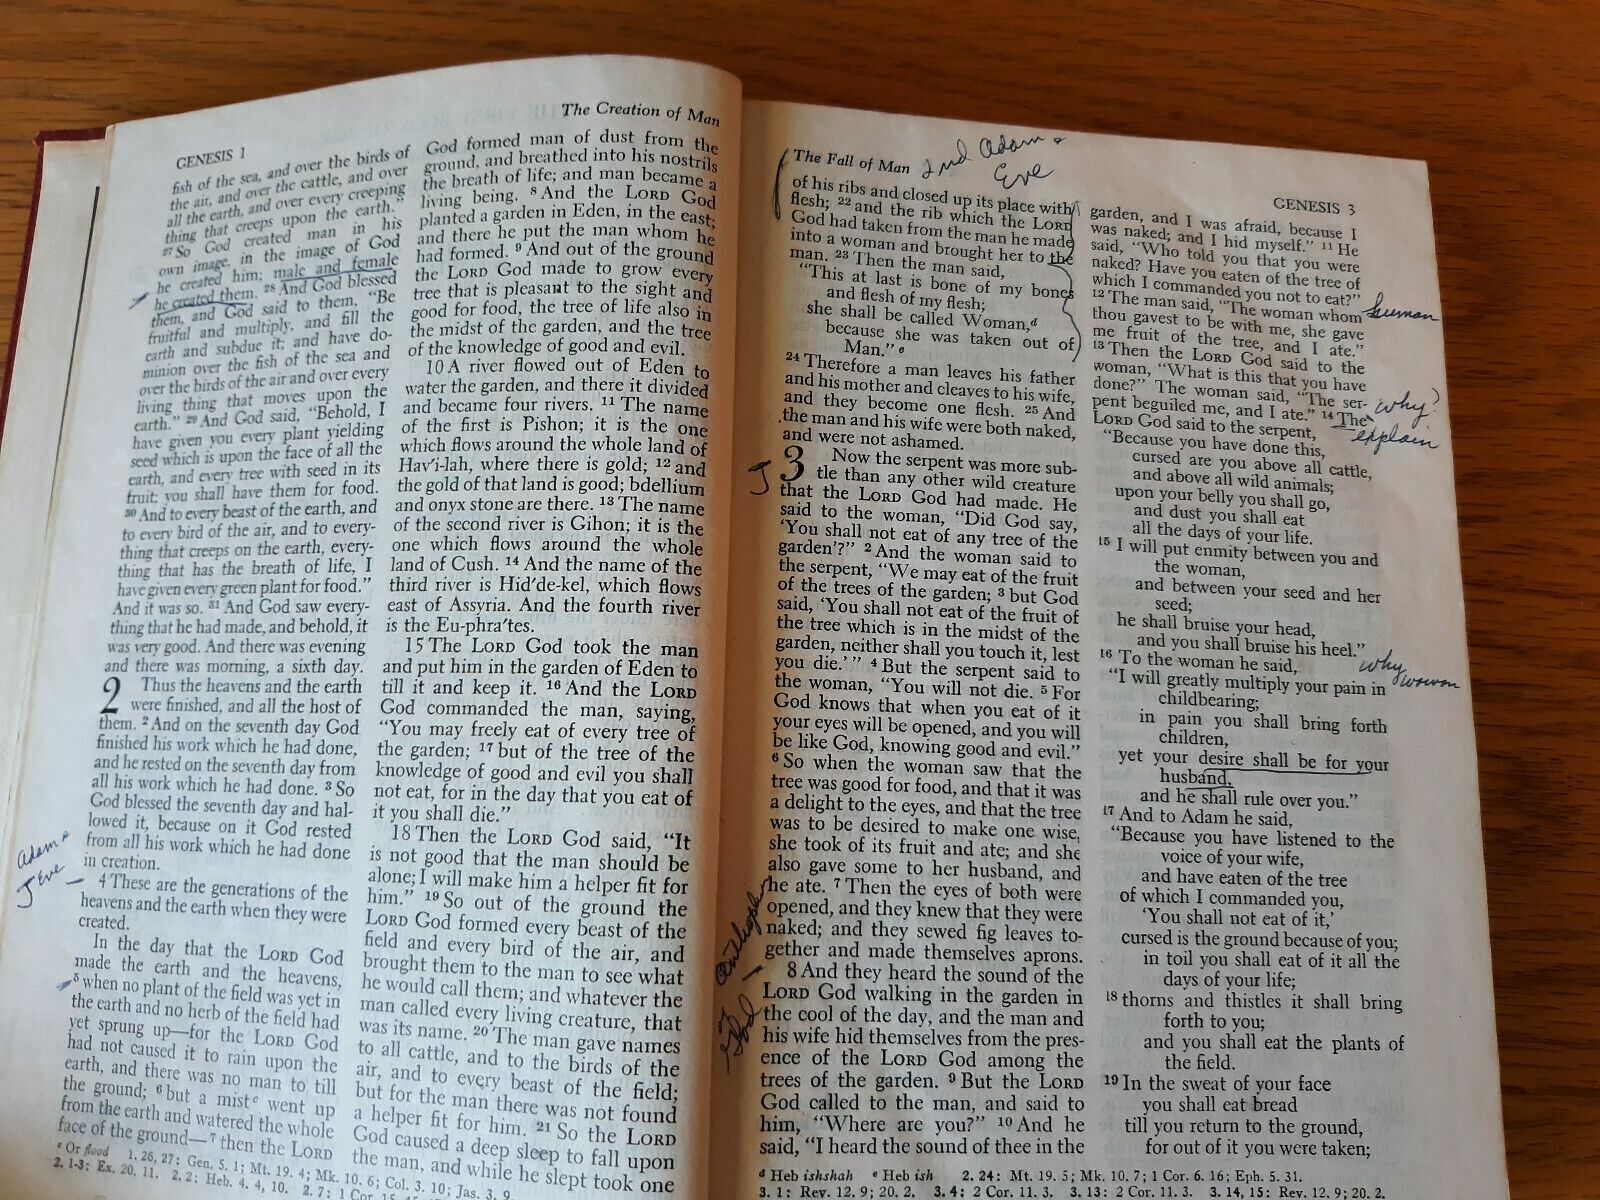 GENESIS 1
The Creation of Man
fish of the sea, and over the birds of
the air, and over the cattle, and over
all the earth, and over every creeping
thing that creeps upon the earth.”
27 So God created man in his
own image, in the image of God
he created him; male and female
he created them. 28 And God blessed
them, and God said to them, “Be
fruitful and multiply, and fill the
earth and subdue it; and have do-
minion over the fish of the sea and
over the birds of the air and over every
living thing that moves upon the
earth.” 29 And God said, “Behold, I
have given you every plant yielding
seed which is upon the face of all the
earth, and every tree with seed in its
fruit; you shall have them for food.
30 And to every beast of the earth, and
to every bird of the air, and to every-
thing that creeps on the earth, every-
thing that has the breath of life, I
have given every green plant for food.”
And it was so. 31 And God saw every-
thing that he had made, and behold, it
was very good. And there was evening
and there was morning, a sixth day.
2 Thus the heavens and the earth
were finished, and all the host of
them. 2 And on the seventh day God
finished his work which he had done,
and he rested on the seventh day from
all his work which he had done. 3 So
God blessed the seventh day and hal-
lowed it, because on it God rested
from all his work which he had done
in creation.
Adam &
J Eve
4 These are the generations of the
heavens and the earth when they were
created.
In the day that the LORD God
made the earth and the heavens,
5 when no plant of the field was yet in
the earth and no herb of the field had
yet sprung up—for the LORD God
had not caused it to rain upon the
earth, and there was no man to till
the ground; 6 but a mist e went up
from the earth and watered the whole
face of the ground— 7 then the LORD
God formed man of dust from the
ground, and breathed into his nostrils
the breath of life; and man became a
living being. 8 And the LORD God
planted a garden in Eden, in the east;
and there he put the man whom he
had formed. 9 And out of the ground
the LORD God made to grow every
tree that is pleasant to the sight and
good for food, the tree of life also in
the midst of the garden, and the tree
of the knowledge of good and evil.
10 A river flowed out of Eden to
water the garden, and there it divided
and became four rivers. 11 The name
of the first is Pishon; it is the one
which flows around the whole land of
Hav′i-lah, where there is gold; 12 and
the gold of that land is good; bdellium
and onyx stone are there. 13 The name
of the second river is Gihon; it is the
one which flows around the whole
land of Cush. 14 And the name of the
third river is Hid′de-kel, which flows
east of Assyria. And the fourth river
is the Eu-phra′tes.
15 The LORD God took the man
and put him in the garden of Eden to
till it and keep it. 16 And the LORD
God commanded the man, saying,
“You may freely eat of every tree of
the garden; 17 but of the tree of the
knowledge of good and evil you shall
not eat, for in the day that you eat of
it you shall die.”
18 Then the LORD God said, “It
is not good that the man should be
alone; I will make him a helper fit for
him.” 19 So out of the ground the
LORD God formed every beast of the
field and every bird of the air, and
brought them to the man to see what
he would call them; and whatever the
man called every living creature, that
was its name. 20 The man gave names
to all cattle, and to the birds of the
air, and to every beast of the field;
but for the man there was not found
a helper fit for him. 21 So the LORD
God caused a deep sleep to fall upon
the man, and while he slept took one
e Or flood 1. 26, 27: Gen. 5. 1; Mt. 19. 4; Mk. 10. 6; Col. 3. 10; Jas. 3. 9.
2. 1-3: Ex. 20. 11. 2. 2: Heb. 4. 4, 10. 2. 7: 1 Cor.
The Fall of Man
2nd Adam &
Eve
GENESIS 3
of his ribs and closed up its place with
flesh; 22 and the rib which the LORD
God had taken from the man he made
into a woman and brought her to the
man. 23 Then the man said,
“This at last is bone of my bones
and flesh of my flesh;
she shall be called Woman, d
because she was taken out of
Man.” e
24 Therefore a man leaves his father
and his mother and cleaves to his wife,
and they become one flesh. 25 And
the man and his wife were both naked,
and were not ashamed.
J
3 Now the serpent was more sub-
tle than any other wild creature
that the LORD God had made. He
said to the woman, “Did God say,
‘You shall not eat of any tree of the
garden’?” 2 And the woman said to
the serpent, “We may eat of the fruit
of the trees of the garden; 3 but God
said, ‘You shall not eat of the fruit of
the tree which is in the midst of the
garden, neither shall you touch it, lest
you die.’ ” 4 But the serpent said to
the woman, “You will not die. 5 For
God knows that when you eat of it
your eyes will be opened, and you will
be like God, knowing good and evil.”
6 So when the woman saw that the
tree was good for food, and that it was
a delight to the eyes, and that the tree
was to be desired to make one wise,
she took of its fruit and ate; and she
also gave some to her husband, and
he ate. 7 Then the eyes of both were
opened, and they knew that they were
naked; and they sewed fig leaves to-
gether and made themselves aprons.
God
8 And they heard the sound of the
LORD God walking in the garden in
the cool of the day, and the man and
his wife hid themselves from the pres-
ence of the LORD God among the
trees of the garden. 9 But the LORD
God called to the man, and said to
him, “Where are you?” 10 And he
said, “I heard the sound of thee in the
garden, and I was afraid, because I
was naked; and I hid myself.” 11 He
said, “Who told you that you were
naked? Have you eaten of the tree of
which I commanded you not to eat?”
12 The man said, “The woman whom
human
thou gavest to be with me, she gave
me fruit of the tree, and I ate.”
13 Then the LORD God said to the
woman, “What is this that you have
done?” The woman said, “The ser-
pent beguiled me, and I ate.” 14 The
why?
explain
LORD God said to the serpent,
“Because you have done this,
cursed are you above all cattle,
and above all wild animals;
upon your belly you shall go,
and dust you shall eat
all the days of your life.
15 I will put enmity between you and
the woman,
and between your seed and her
seed;
he shall bruise your head,
and you shall bruise his heel.”
16 To the woman he said,
why
woman
“I will greatly multiply your pain in
childbearing;
in pain you shall bring forth
children,
yet your desire shall be for your
husband,
and he shall rule over you.”
17 And to Adam he said,
“Because you have listened to the
voice of your wife,
and have eaten of the tree
of which I commanded you,
‘You shall not eat of it,’
cursed is the ground because of you;
in toil you shall eat of it all the
days of your life;
18 thorns and thistles it shall bring
forth to you;
and you shall eat the plants of
the field.
19 In the sweat of your face
you shall eat bread
till you return to the ground,
for out of it you were taken;
d Heb ishshah e Heb ish 2. 24: Mt. 19. 5; Mk. 10. 7; 1 Cor. 6. 16; Eph. 5. 31.
3. 1: Rev. 12. 9; 20. 2. 3. 4: 2 Cor. 11. 3. 3. 13: 2 Cor. 11. 3. 3. 14, 15: Rev. 12. 9; 20. 2.